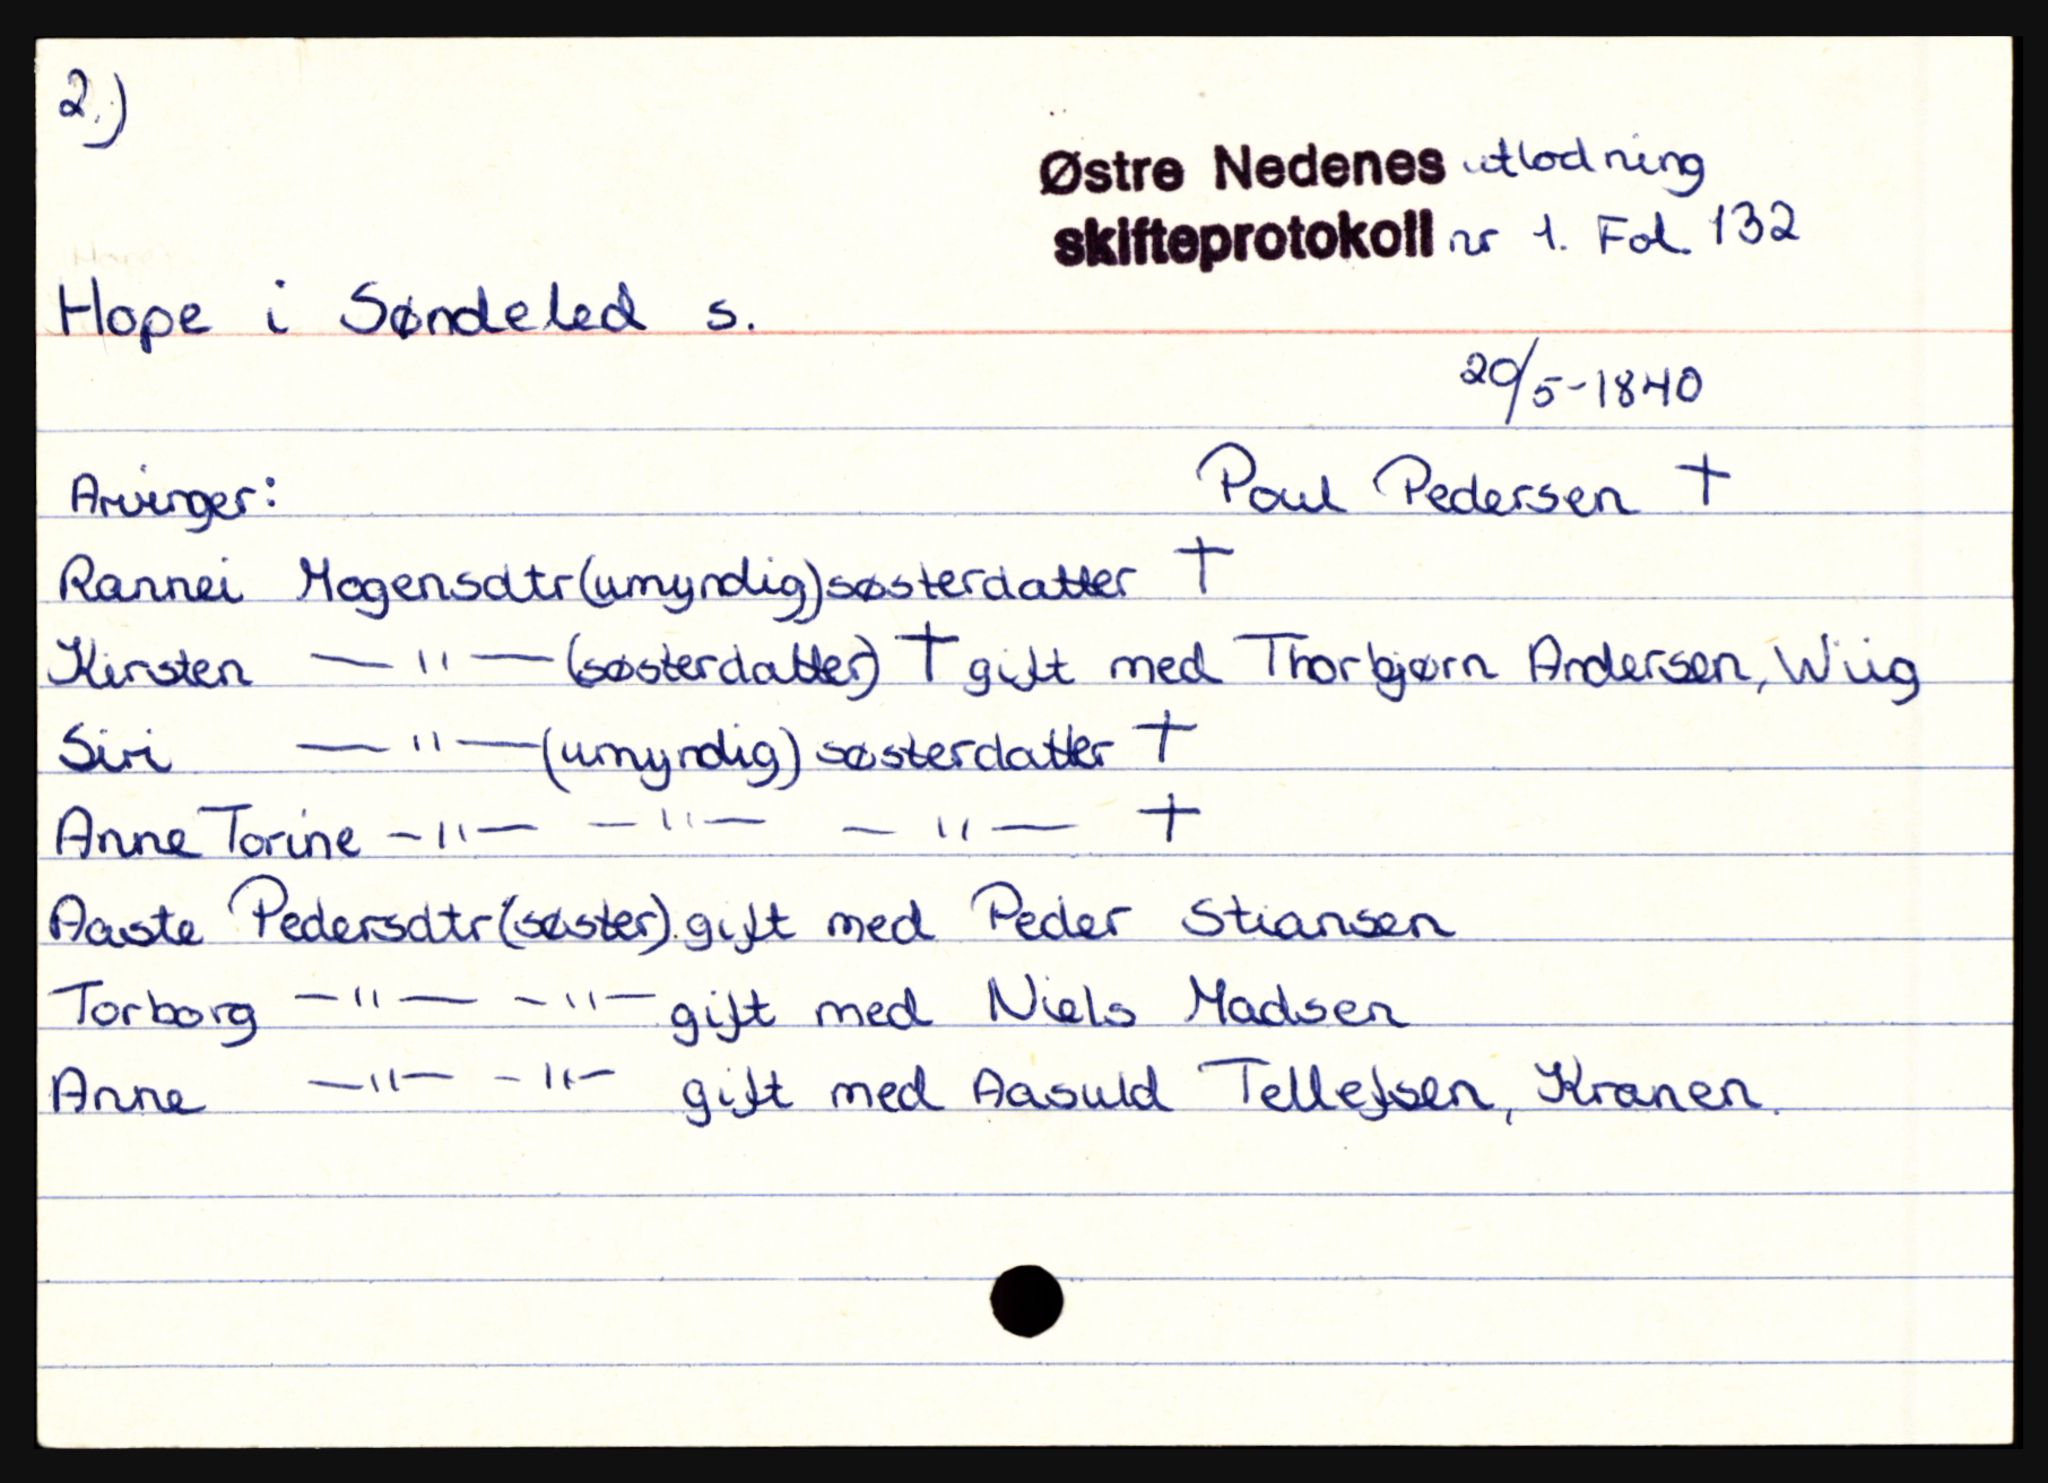 2.)
Østre Nedenes utlodning
skifteprotokoll nr 1. Fol. 132
Hope i Søndeled s.
20/5-1840
Arvinger: Poul Pedersen †
Rannei Mogensdtr (umyndig) søsterdatter †
Kirsten — " — (søsterdatter) † gift med Thorbjørn Andersen, Wiig
Siri — " — (umyndig) søsterdatter †
Anne Torine — " — — " — — " — †
Aaste Pedersdtr (søster). gift med Peder Stiansen
Torborg — " — — " — gift med Niels Madsen
Anne — " — — " — gift med Aasuld Tellefsen, Kranen.